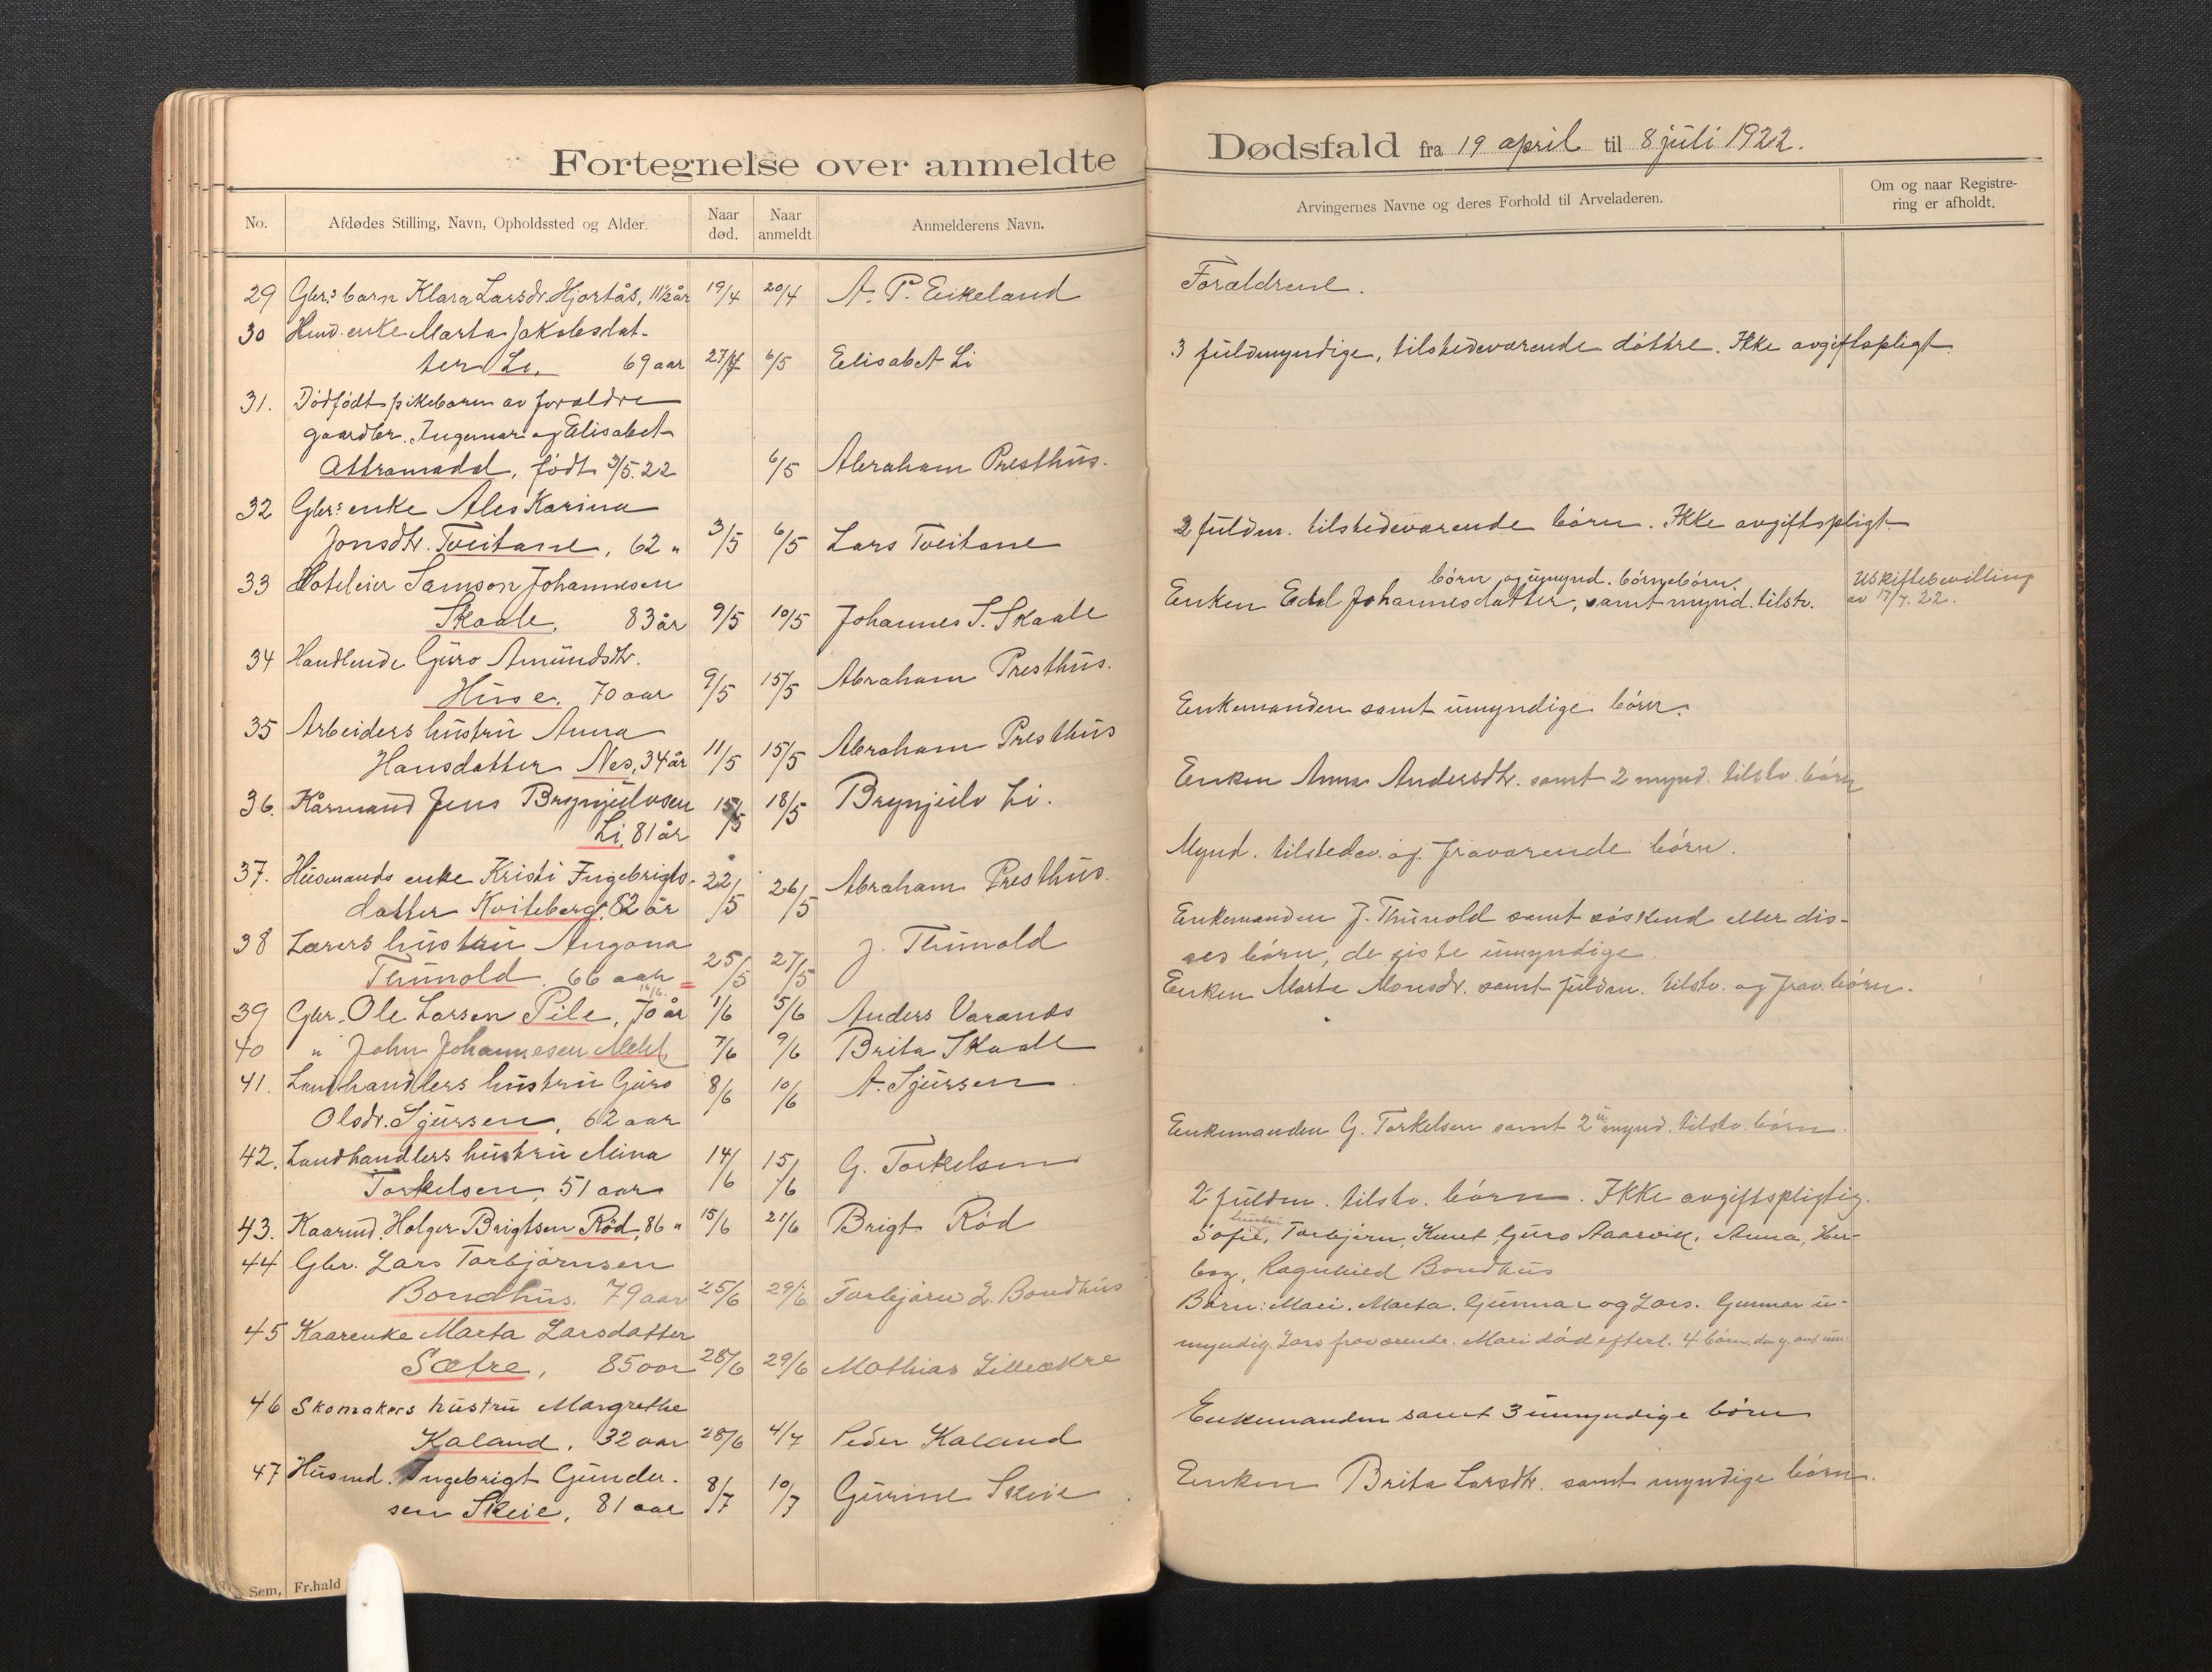 Fortegnelse over anmeldte
No. Afdødes Stilling, Navn, Opholdssted og Alder. Naar død. Naar anmeldt Anmelderens Navn.
29 Gbr.s barn Klara Larsdr. Hjortås, 11½ år 19/4 20/4 A. P. Eikeland
30 Husm. enke Marta Jakobsdat-
ter Li, 69 aar 27/4 6/5 Elisabet Li
31. Dödfödt pikebarn av foræl­dre
gaardbr. Ingemar og Elisabet
Attramadal, födt 3/5.22 6/5 Abraham Presthus.
32 Gbr.s enke Ales Karina
Jonsdtr. Tveitane, 62 " 3/5 6/5 Lars Tveitane
33 Hoteleier Samson Johannesen
Skaale, 83 år 9/5 10/5 Johannes S. Skaale
34 Handlende Guro Amundsdtr.
Huse, 70 aar 9/5 15/5 Abraham Presthus.
35 Arbeiders hustru Anna
Hansdatter Nes, 34 år 11/5 15/5 Abraham Presthus
36. Kårmand Jens Brynjulvsen 15/5 18/5 Brynjulv Li.
Li, 81 år
37. Husmands enke Kristi Ingebrigts- 22/5 26/5 Abraham Presthus.
datter Kviteberg, 82 år
38 Lærers hustru Angona
Thunold. 66 aar 25/5 27/5 J. Thunold
39 Gbr. Ole Larsen Pile, 70 år 1/6 5/6 Anders Varands
40 " John Johannesen Mehl 7/6 9/6 Brita Skaale
41. Landhandlers hustru Guro 8/6 10/6 A. Sjursen
Olsdr. Sjursen, 62 aar
42. Landhandlers hustru Mina 14/6 15/6 G. Torkelsen
Torkelsen, 51 aar
43. Kaarmd. Holger Brigtsen Röd, 86 " 15/6 21/6 Brigt Röd
44 Gbr. Lars Torbjörnsen
Bondhus. 79 aar 25/6 29/6 Torbjörn L. Bondhus
45 Kaarenke Marta Larsdatter
Sætre, 85 aar 28/6 29/6 Mathias Lilleækre
46 Skomakers hustru Margrethe
Kaland, 32 aar 28/6 4/7 Peder Kaland
47 Husmd. Ingebrigt Gunder-
sen Skeie, 81 aar 8/7 10/7 Gurine Skeie
Sem, Fr.hald
Dødsfald fra 19 april til 8 juli 1922.
Arvingernes Navne og deres Forhold til Arveladeren. Om og naar Registrering er afholdt.
Forældrene.
3 fuldmyndige, tilstedeværende döttre. Ikke avgiftspligt.
2 fuldm. tilstedeværende börn. Ikke avgiftspligt
börn og umynd. börnebörn.
Enken Edel Johannesdatter, samt mynd. tilstv. Uskiftebevilling av 17/7.22.
Enkemanden samt umyndige börn.
Enken Anna Andersdtr. samt 2 mynd. tilstv. börn
Mynd. tilstedev. og fraværende börn.
Enkemanden J. Thunold samt söskend eller dis-
ses börn, de siste umyndige.
Enken Marta Monsdr. samt fuldm. tilstv. og frav. börn.
Enkemanden G. Torkelsen samt 2 umynd. tilstv. börn.
2 fuldm. tilstv. börn. Ikke avgiftspligtig.
hustru
Sofie, Torbjörn, Knut, Guro Aaarvik, Anna, Her-
borg, Ragnhild Bondhus
Börn: Mari, Marta, Gunnar og Lars. Gunnar u-
myndig. Lars fraværende. Mari död efterl. 4 börn,
Enkemanden samt 3 umyndige börn
Enken Brita Larsdtr. samt myndige börn.